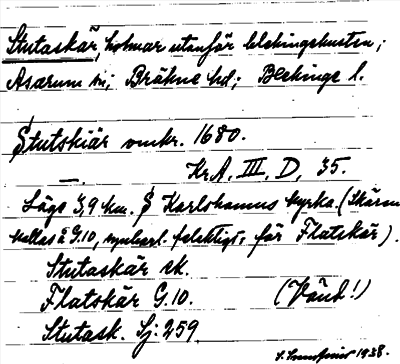 Stutaskär, holmar utanför blekingskusten;
Asarum sn; Bräkne hd; Blekinge l.
Stutskiär omkr. 1680.
— Kr.A. III, D, 35.
Läge 3,9 km. S Karlshamns kyrka. (Skären
kallas å G.10, felaktigt, för Flatskär).
Stutaskär sk.
Flatskär G.10. (Vänd!)
Stutask. Sj. 259
1938.